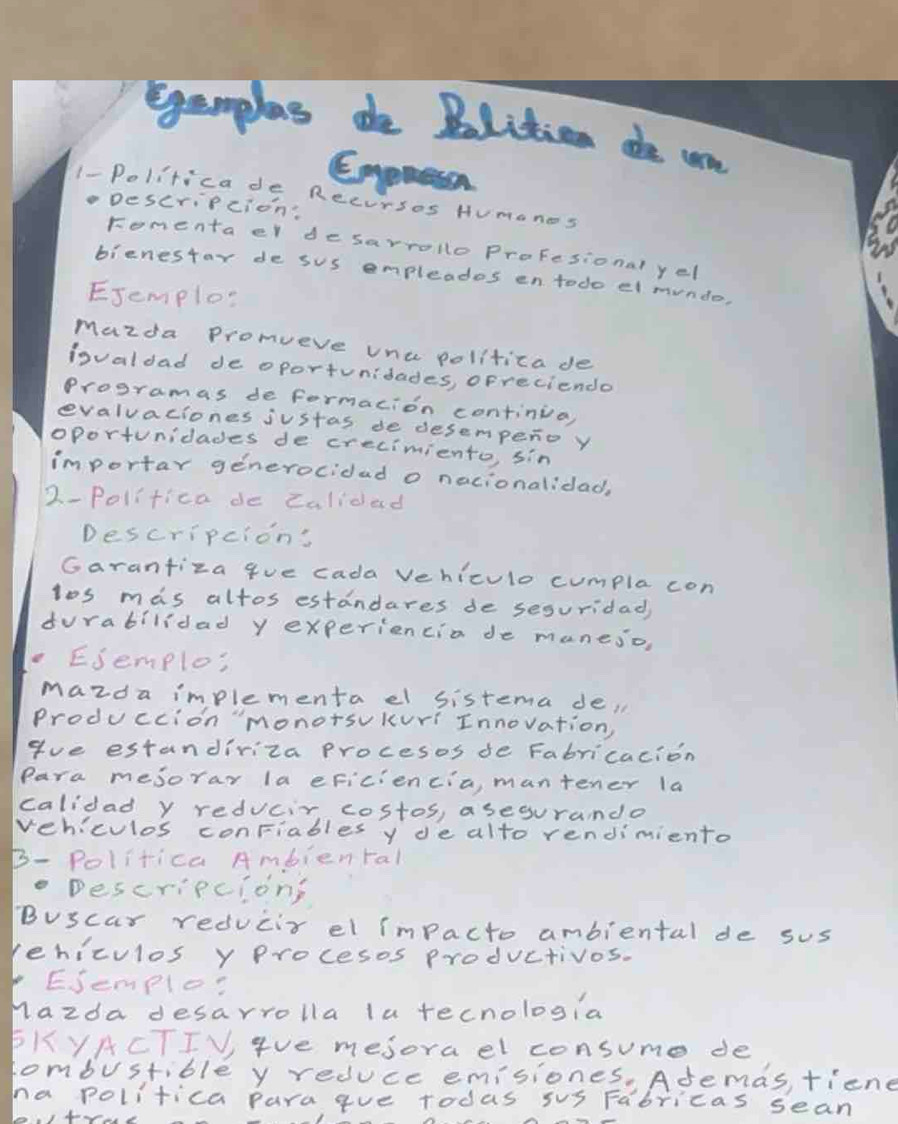 Egemplas de Politica de una
Empresa
1- Política de Recursos Humanos
• Descripción:
Fomenta el desarrollo Profesional y el
bienestar de sus empleados en todo el mundo.
Ejemplo:
Mazda Promueve una política de
igualdad de oportunidades, ofreciendo
Programas de Formación continua,
evaluaciones justas de desempeño y
oportunidades de crecimiento, sin
importar génerocidad o nacionalidad,
2- Política de Calidad
Descripción:
Garantiza que cada vehículo cumpla con
los más altos estándares de seguridad,
durabilidad y experiencia de manejo,
• Ejemplo:
Mazda implementa el sistema de
Producción "Monotsukuri Innovation,"
que estandíriza Procesos de Fabricación
Para mejorar la eficiencia, mantener la
calidad y reducir costos, asegurando
vehículos confiables y de alto rendimiento
3- Política Ambiental
• Descripción:
Buscar reducir el impacto ambiental de sus
vehículos y Procesos Productivos.
• Ejemplo:
Mazda desarrolla la tecnología
SKYACTIV, que mejora el consumo de
combustible y reduce emisiones. Además, tiene
na política Para que todas sus Fábricas sean